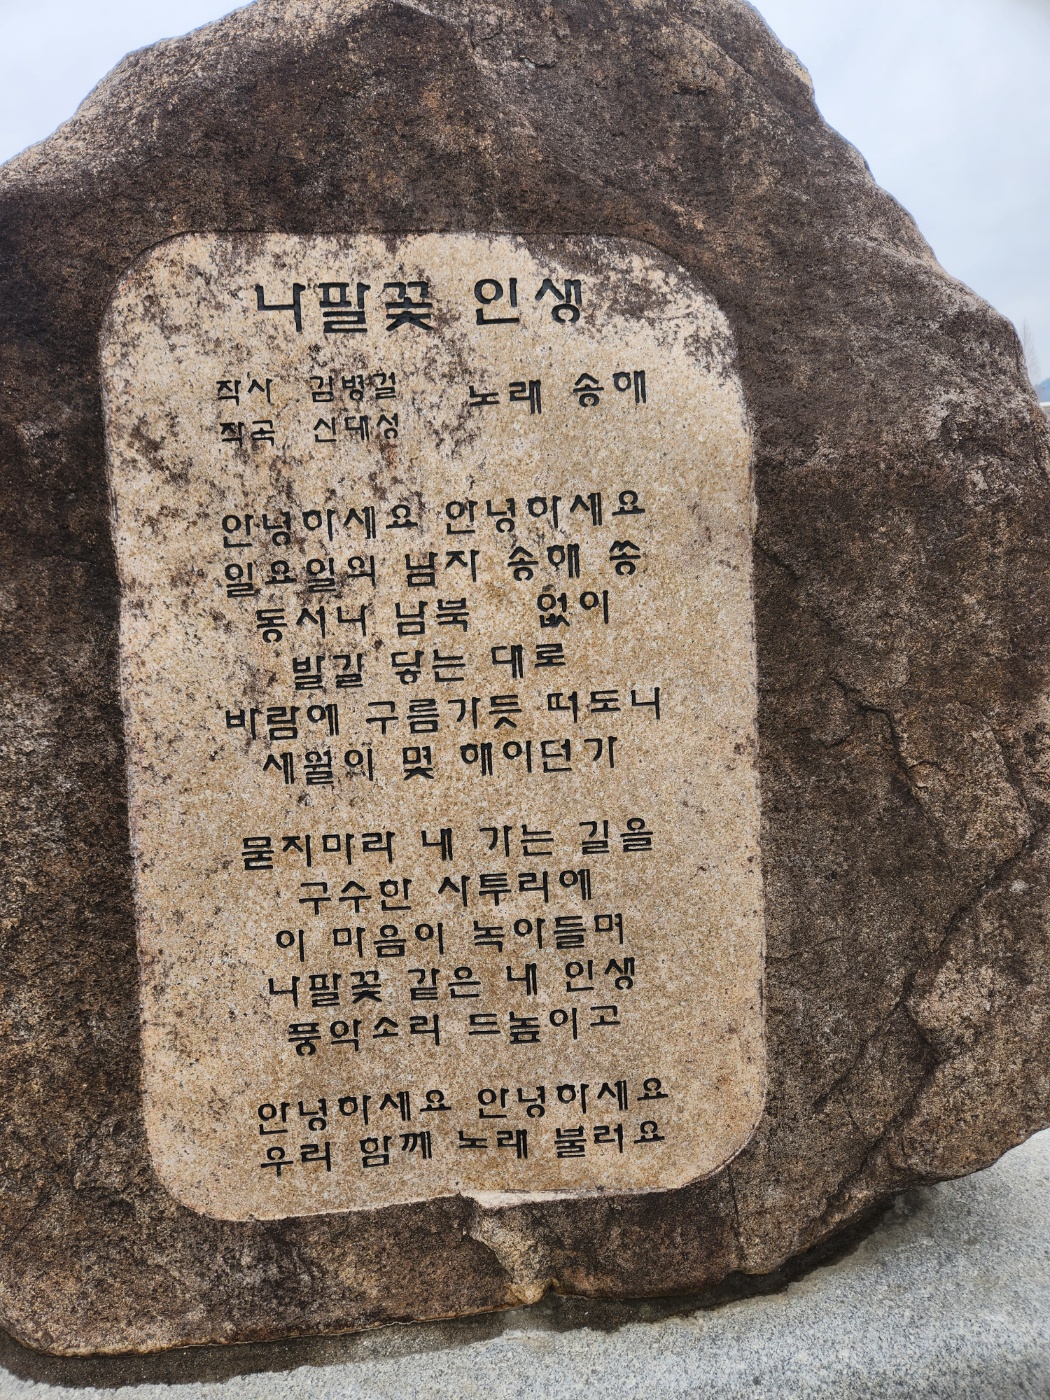 나팔꽃 인생
작사 김병걸 노래 송해
작곡 신대성
안녕하세요 안녕하세요
일요일의 남자 송해 쏭
동서나 남북 없이
발길 닿는 대로
바람에 구름가듯 떠도니
세월이 몇 해이던가
묻지마라 내 가는 길을
구수한 사투리에
이 마음이 녹아들며
나팔꽃 같은 내 인생
풍악소리 드높이고
안녕하세요 안녕하세요
우리 함께 노래 불러요